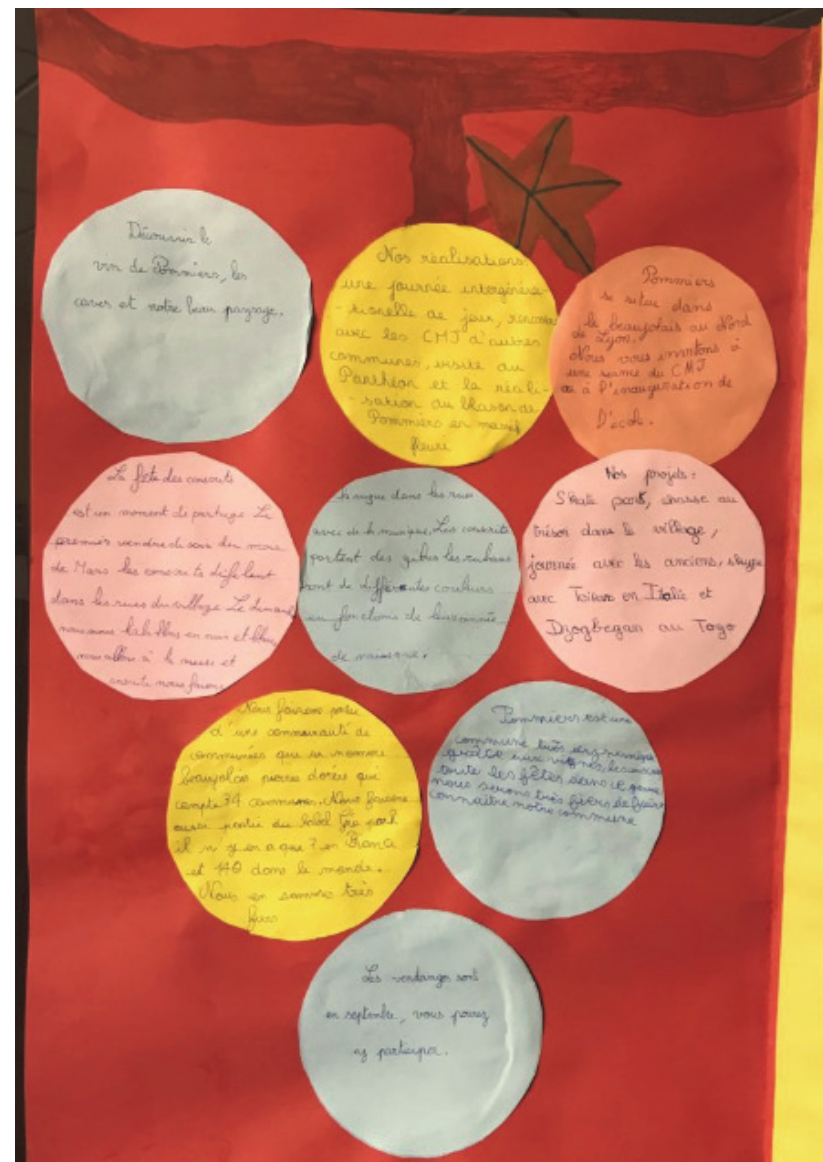 Découvrir le
vin de Pommiers, les
caves et notre beau paysage.
Nos réalisations:
une journée intergénéra-
-tionelle de jeux, rencontre
avec les CMJ d'autres
communes, visite du
Panthéon et la réali-
-sation du blason de
Pommiers en massif
fleuri
Pommiers
se situe dans
le beaujolais au Nord
de Lyon.
Nous vous invitons à
une séance du CMJ
ou à l'inauguration de
l'école.
La fête des conscrits
est un moment de partage. Le
premier vendredi soir du mois
de Mars les conscrits défilent
dans les rues du village. Le dimanche
nous nous habillons en noir et blanc
nous allons à la messe et
ensuite nous faisons
la vague dans les rues
avec de la musique. Les conscrits
portent des gibus les rubans
sont de différentes couleurs
en fonctions de leur année
de naissance.
Nos projets:
Skate park, chasse au
trésor dans le village,
journée avec les anciens, skype
avec en Italie et
Djogbegan au Togo
Nous faisons partie
d'une communauté de
communes que se nomme
beaujolais pierres dorées qui
compte 34 communes. Nous faisons
aussi partie du label Géo park
il n'y en a que 7 en France
et 140 dans le monde.
Nous en sommes très
fiers
Pommiers est une
commune très
grâce aux vignes,
toute les fêtes dans ce genre
nous serons très fiers de faire
connaître notre commune
Les vendanges sont
en septembre, vous pourrez
y participer.